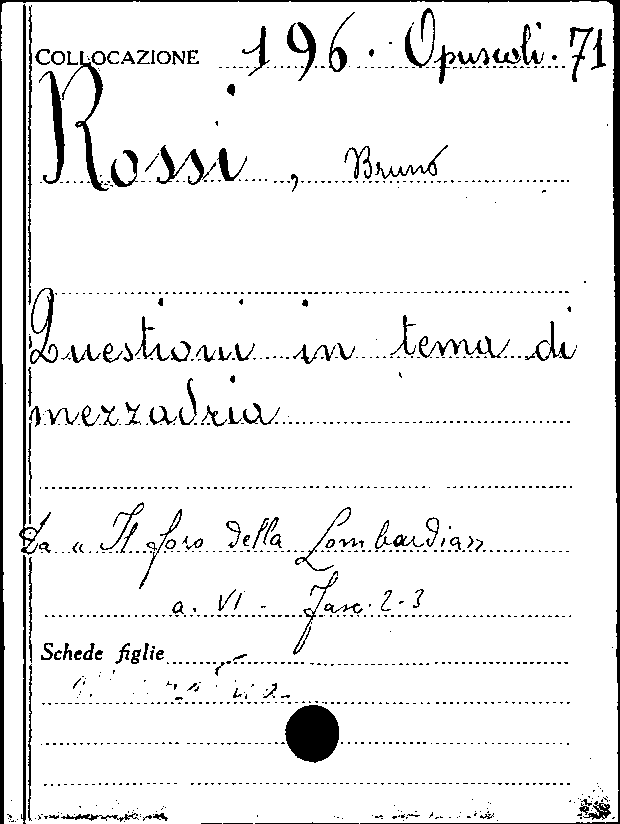 COLLOCAZIONE 196. Opuscoli. 71
Rossi, Bruno
Questioni in tema di
mezzadria
Da « Il foro della Lombardia »
a. VI - Fasc. 2-3
Schede figlie